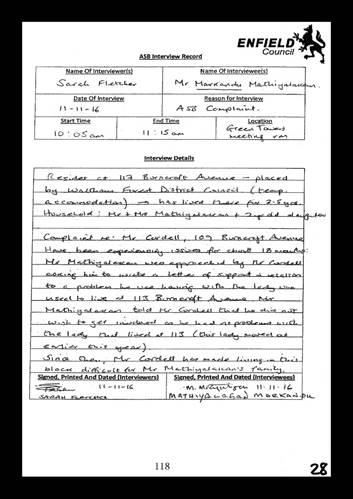 ENFIELD
Council
ASB Interview Record
Name Of Interviewer(s)
Name Of Interviewee(s)
Sarah Fletcher
Mr Markandu Mathiyalagan.
Date Of Interview
Reason for Interview
11-11-16
ASB Complaint.
Start Time
End Time
Location
10:05am
11:15am
Green Towers
meeting rm
Interview Details
Resides at 117 Burncroft Avenue - placed
by Waltham Forest District Council (temp.
accommodation) - has lived there for 2.5 yrs.
Household: Mr + Mrs Mathiyalagan + 2yr old daughter
Complaint re: Mr. Cordell, 109 Burncroft Avenue
Have been experiencing issues for about 18 months
Mr Mathiyalagan was approached by Mr Cordell
asking him to write a letter of support in relation
to a problem he was having with the lady who
used to live at 113 Burncroft Avenue. Mr
Mathiyalagan told Mr Cordell that he did not
wish to get involved as he had no problems with
the lady that lived at 113 (this lady moved out
earlier this year).
Since then, Mr Cordell has made living in this
block difficult for Mr Mathiyalagan's family.
Signed, Printed And Dated (Interviewers)
Signed, Printed And Dated (Interviewees)
11-11-16
11-11-16
SARAH FLETCHER
MATHIYALAGAN MARKANDU
118
28